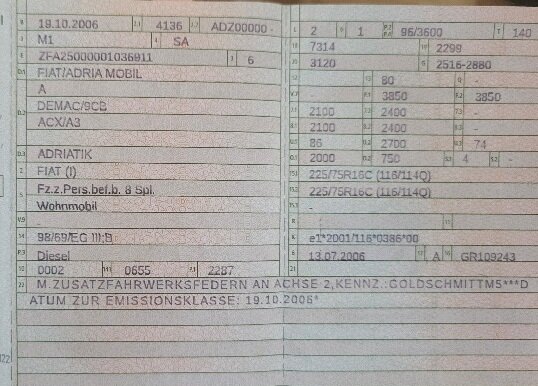 B 19.10.2006 2.1 4136 2.2 ADZ00000 -
J M1 4 SA
E ZFA25000001036911 3 6
D.1 FIAT/ADRIA MOBIL
A
D.2 DEMAC/9CB
ACX/A3
D.3 ADRIATIK
2 FIAT (I)
5 Fz.z.Pers.bef.b. 8 Spl.
Wohnmobil
V.9 -
14 98/69/EG III;B
P.3 Diesel
10 0002 14.1 0655 P.1 2287
L 2 9 1 P.2/P.4 96/3600 T 140
18 7314 19 2299
20 3120 G 2516-2880
12 - 13 80 Q -
V.7 - F.1 3850 F.2 3850
7.1 2100 7.2 2400 7.3 -
8.1 2100 8.2 2400 8.3 -
U.1 86 U.2 2700 U.3 74
O.1 2000 O.2 750 S.1 4 S.2 -
15.1 225/75R16C (116/114Q)
15.2 225/75R16C (116/114Q)
15.3 -
R - 11
K e1*2001/116*0386*00
6 13.07.2006 17 A 16 GR109243
21
22 M.ZUSATZFAHRWERKSFEDERN AN ACHSE 2,KENNZ.:GOLDSCHMITTM5***D
ATUM ZUR EMISSIONSKLASSE: 19.10.2006*